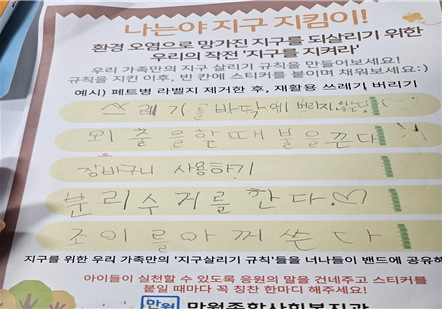 나는야 지구 지킴이!
환경 오염으로 망가진 지구를 되살리기 위한
우리의 작전 '지구를 지켜라'
우리 가족만의 지구 살리기 규칙을 만들어보세요!
규칙을 지킨 이후, 빈 칸에 스티커를 붙이며 채워보세요:)
예시) 페트병 라벨지 제거한 후, 재활용 쓰레기 버리기
쓰레기를 바닥에 버리지 않는다
외출을할때불을끈다
장바구니 사용하기
분리수거를 한다!♡
조이를아껴쓴다
지구를 위한 우리 가족만의 '지구살리기 규칙'들을 너나들이 밴드에 공유해
아이들이 실천할 수 있도록 응원의 말을 건네주고 스티커를
붙일 때마다 꼭 칭찬 한마디 해주세요!
만월 만월종합사회복지관